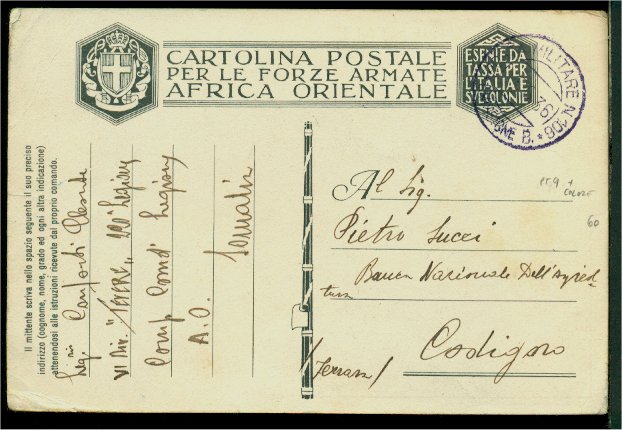 CARTOLINA POSTALE
PER LE FORZE ARMATE
AFRICA ORIENTALE
ESENTE DA
TASSA PER
L'ITALIA E
SUE COLONIE
MILITARE N° 906
B.
Il mittente scriva nello spazio seguente il suo preciso
indirizzo (cognome, nome, grado ed ogni altra indicazione)
attenendosi alle istruzioni ricevute dal proprio comando.
Conforti
VI Div. "Tevere" 120ª Legione
Comp. Com.do Legione
A. O. Somalia
PT. 9 +
COLORE
60
Al Sig.
Pietro Succi
Banca Nazionale Dell'agricol-
tura
Codigoro
/Ferrara/